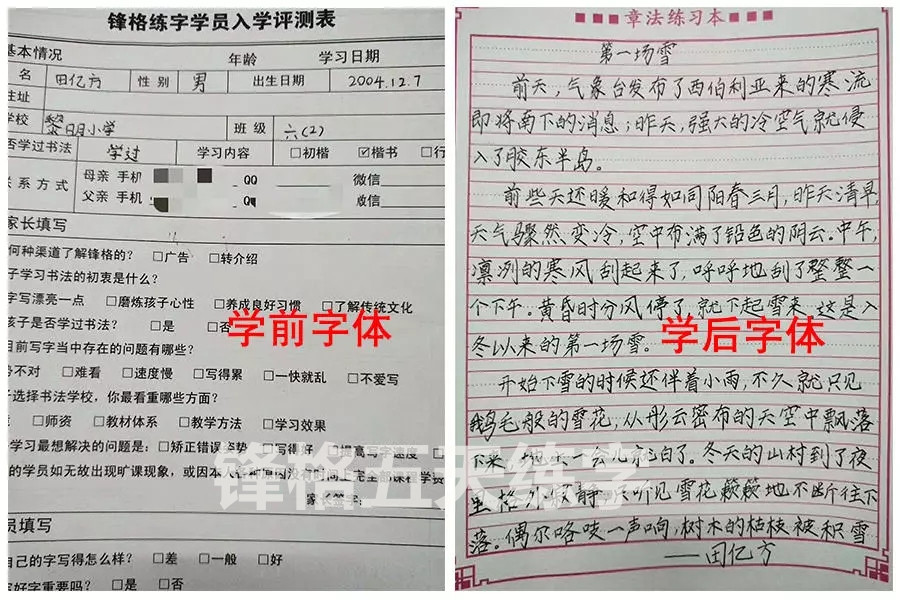 锋格练字学员入学评测表
基本情况
年龄 学习日期
名 田亿方 性别 男 出生日期 2004.12.7
住址
学校 黎明小学 班级 六(2)
否学过书法 学过 学习内容 □初楷 ☑楷书 □行
系方式 母亲 手机 QQ 微信
父亲 手机 QQ 微信
家长填写
何种渠道了解锋格的? □广告 □转介绍
子学习书法的初衷是什么?
字写漂亮一点 □磨炼孩子心性 □养成良好习惯 □了解传统文化
孩子是否学过书法? □是 □否
学前字体
目前写字当中存在的问题有哪些?
势不对 □难看 □速度慢 □写得累 □一快就乱 □不爱写
子选择书法学校,你最看重哪些方面?
□师资 □教材体系 □教学方法 □学习效果
学习最想解决的问题是:□矫正错误姿势 □写得好 □提高写字速度
的学员如无故出现旷课现象,或因本人各种原因没有时间上完全部课程学费
家长签字:
员填写
自己的字写得怎么样? □差 □一般 □好
写好字重要吗? □是 □否
章法练习本
第一场雪
前天,气象台发布了西伯利亚来的寒流
即将南下的消息;昨天,强大的冷空气就侵
入了胶东半岛。
前些天还暖和得如同阳春三月,昨天清早,
天气骤然变冷,空中布满了铅色的阴云。中午,
凛冽的寒风刮起来了,呼呼地刮了整整一
个下午。黄昏时分风停了,就下起雪来。这是入
冬以来的第一场雪。
学后字体
开始下雪的时候还伴着小雨,不久就只见
鹅毛般的雪花,从彤云密布的天空中飘落
下来,地上一会儿就白了。冬天的山村到了夜
里格外寂静,只听见雪花簌簌地不断往下
落。偶尔咯吱一声响,树木的枯枝被积雪
——田亿方
锋格五天练字